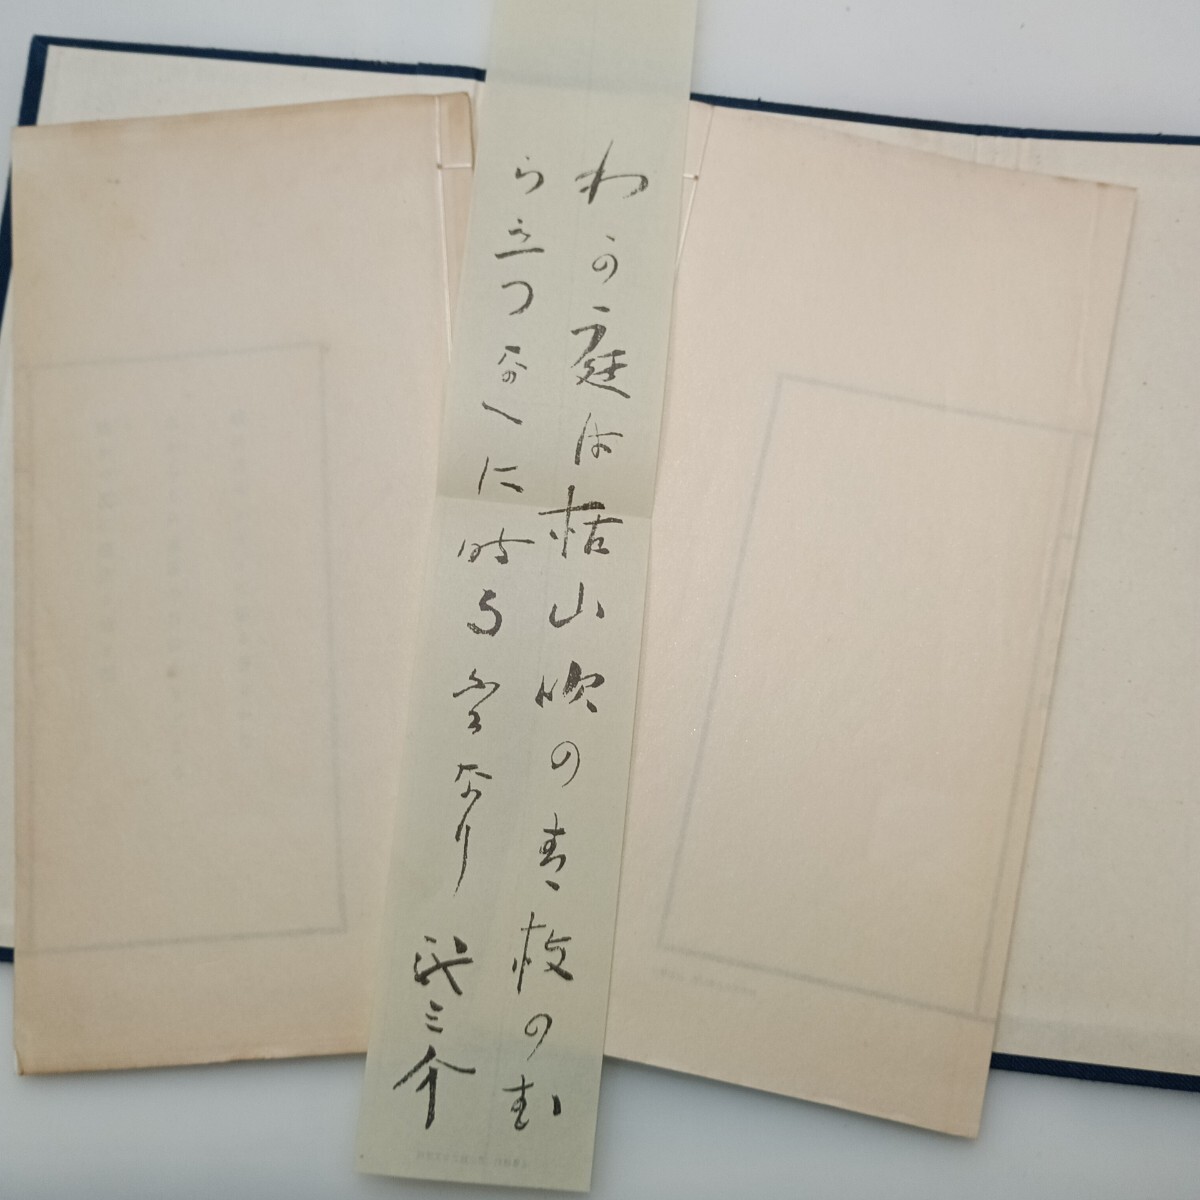 わか庭は枯山吹の青枝のむ
ら立つなへに時雨ふるなり 龍之介